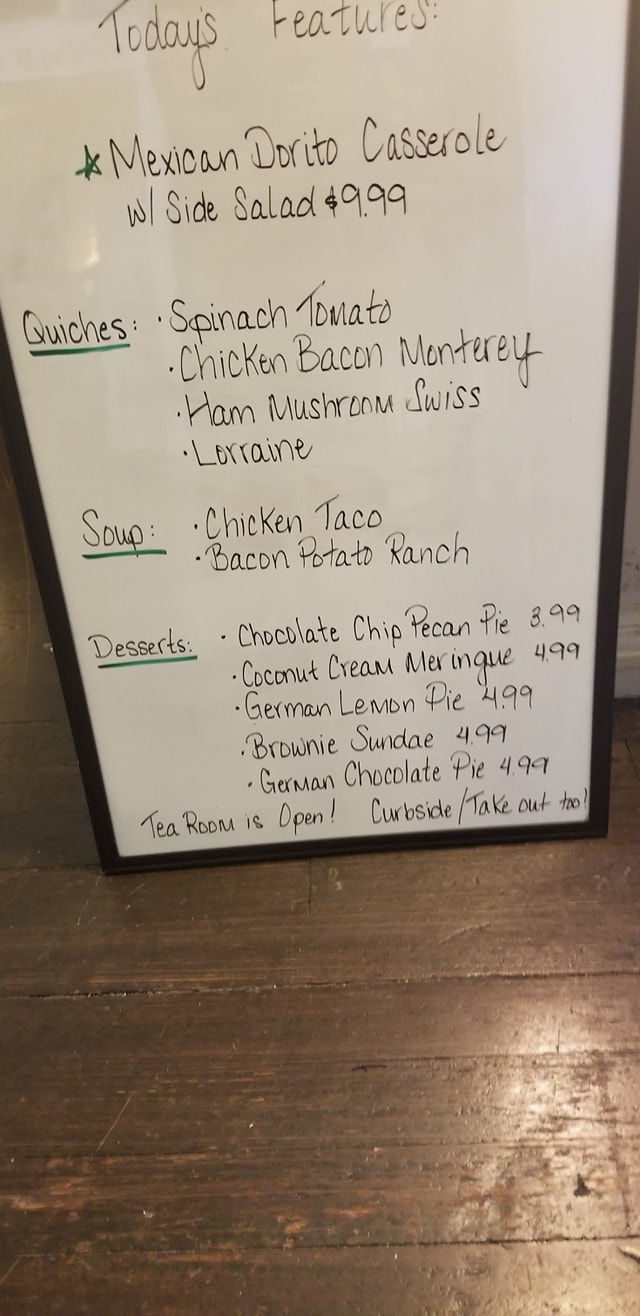 Today's Features:
Mexican Dorito Casserole
w/ Side Salad $9.99
Quiches: · Spinach Tomato
· Chicken Bacon Monterey
· Ham Mushroom Swiss
· Lorraine
Soup: · Chicken Taco
· Bacon Potato Ranch
Desserts: · Chocolate Chip Pecan Pie 3.99
· Coconut Cream Meringue 4.99
· German Lemon Pie 4.99
· Brownie Sundae 4.99
· German Chocolate Pie 4.99
Tea Room is Open! Curbside/Take out too!